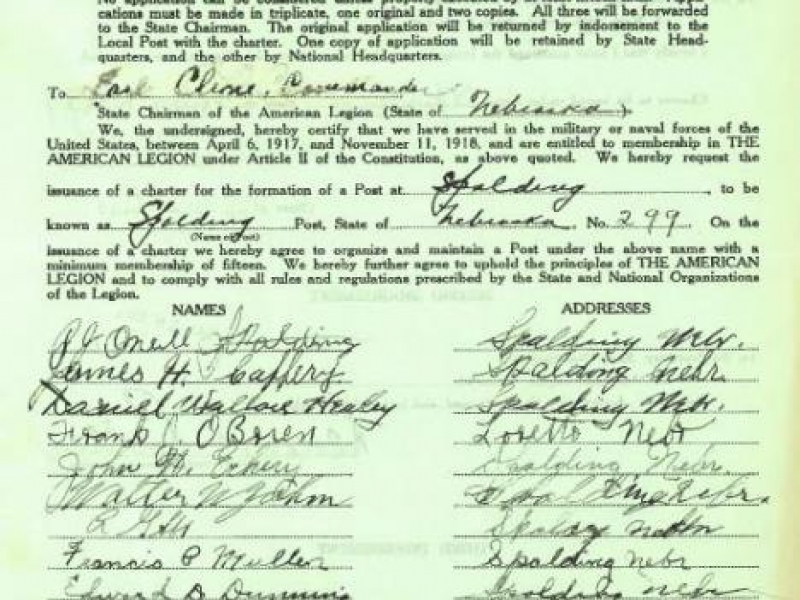 No application can be considered unless properly executed by
cations must be made in triplicate, one original and two copies. All three will be forwarded
to the State Chairman. The original application will be returned by indorsement to the
Local Post with the charter. One copy of application will be retained by State Head-
quarters, and the other by National Headquarters.
To Earl Cline, Commander
State Chairman of the American Legion (State of Nebraska)
We, the undersigned, hereby certify that we have served in the military or naval forces of the
United States, between April 6, 1917, and November 11, 1918, and are entitled to membership in THE
AMERICAN LEGION under Article II of the Constitution, as above quoted. We hereby request the
issuance of a charter for the formation of a Post at Spalding, to be
known as Spalding Post, State of Nebraska, No. 299 On the
(Name of Post)
issuance of a charter we hereby agree to organize and maintain a Post under the above name with a
minimum membership of fifteen. We hereby further agree to uphold the principles of THE AMERICAN
LEGION and to comply with all rules and regulations prescribed by the State and National Organizations
of the Legion.
NAMES ADDRESSES
O'Neill Spalding Spalding Nebr.
James H. Caffery Spalding Nebr.
Daniel Wallace Healey Spalding
Frank J. O'Brien Loretto Nebr
John Spalding Nebr.
Walter Spalding Nebr.
Francis P Mullen Spalding nebr
Edward D. Dunning Spalding nebr